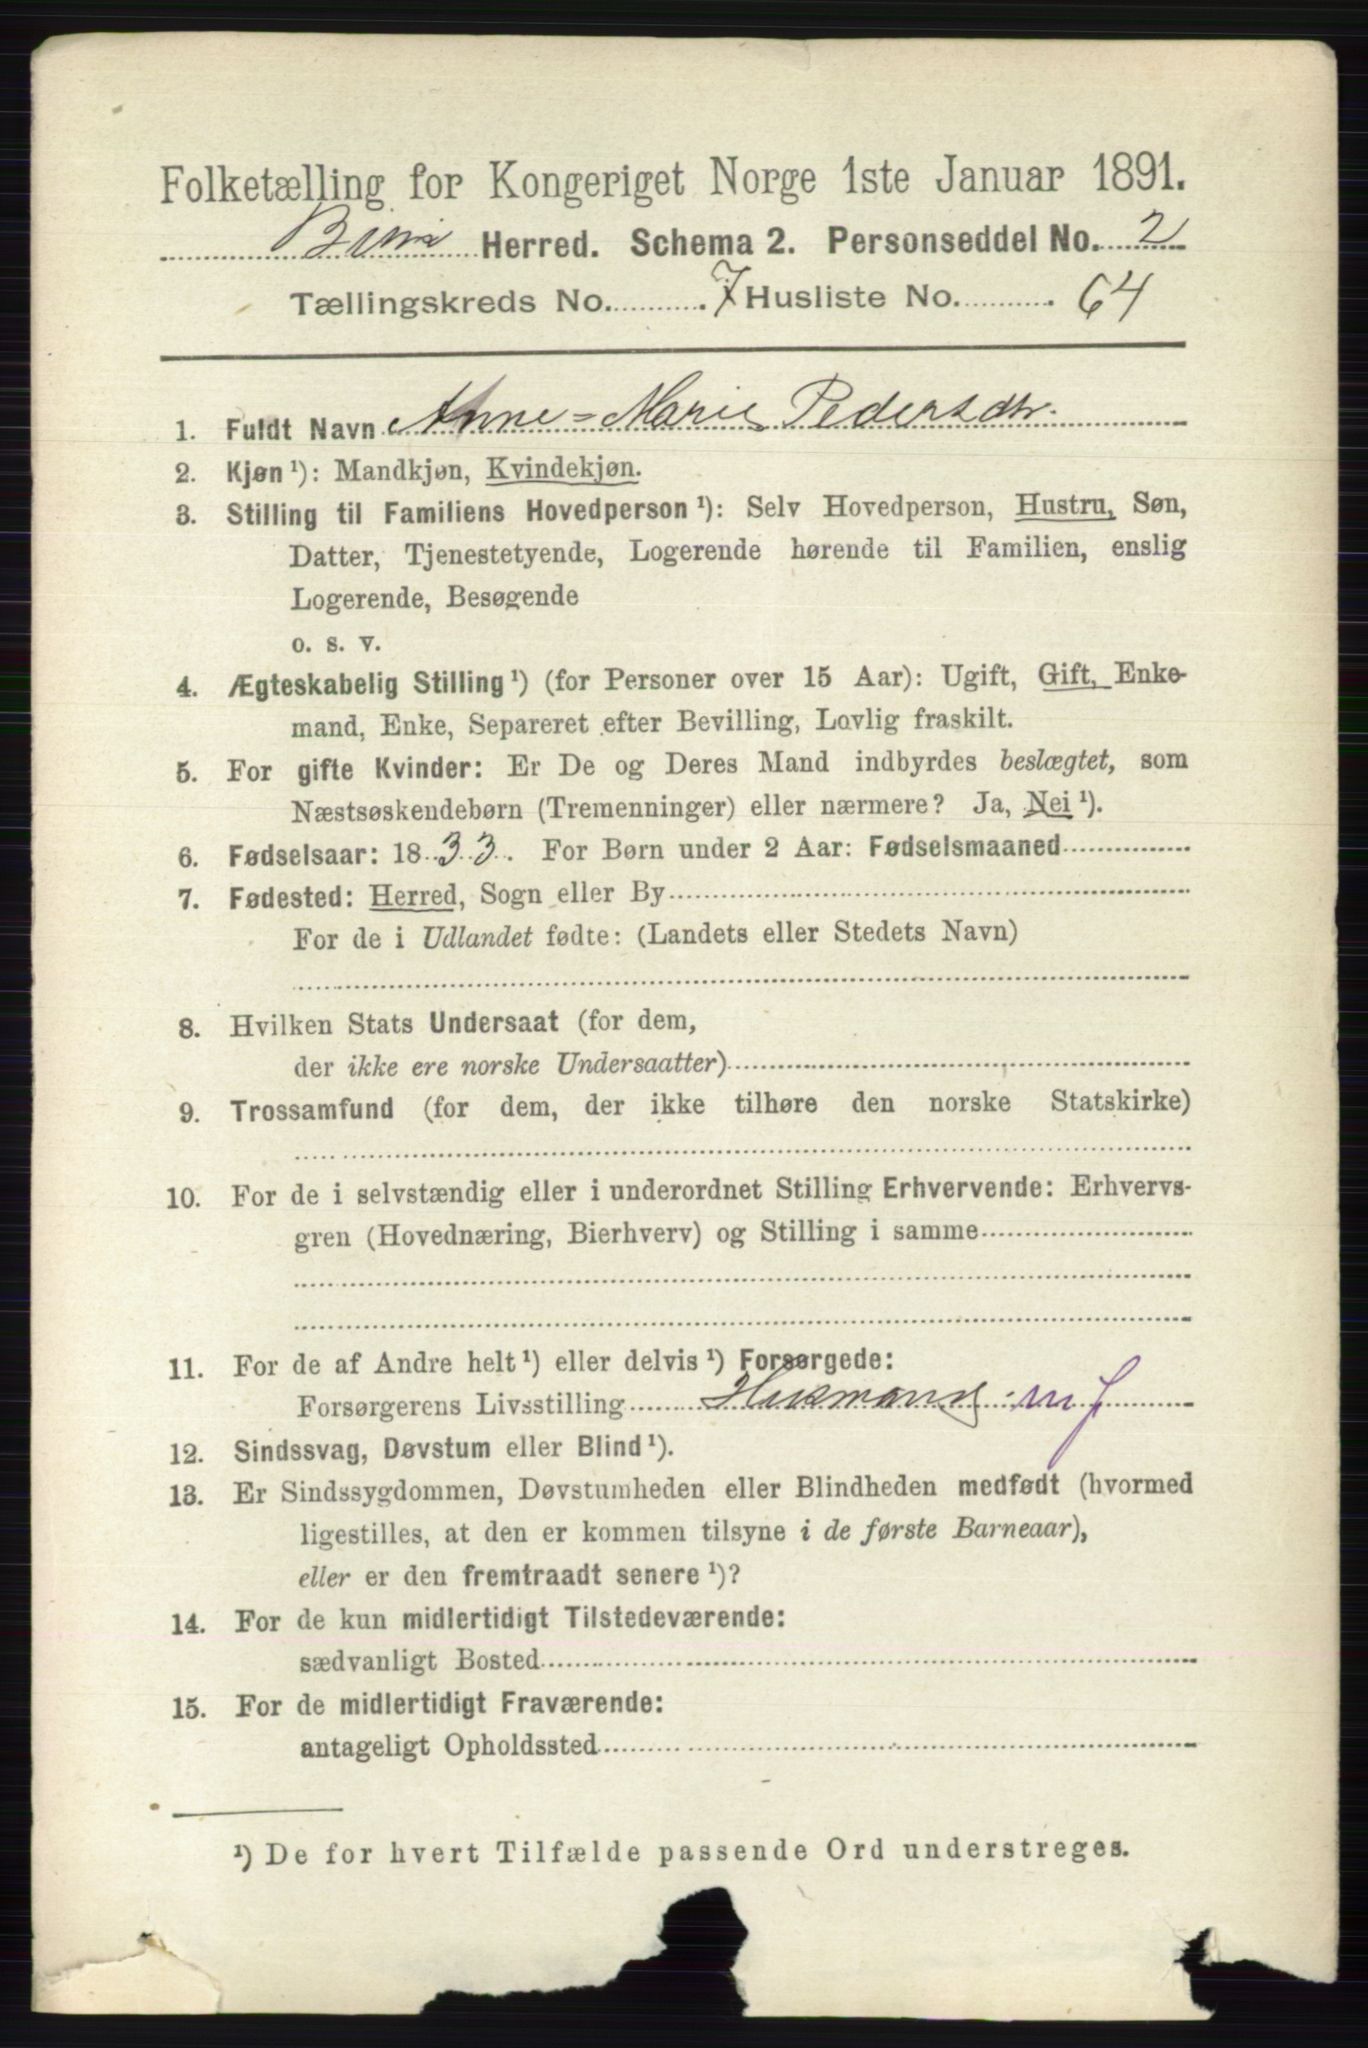 Folketælling for Kongeriget Norge 1ste Januar 1891.
Biri Herred. Schema 2. Personseddel No. 2
Tællingskreds No. 7 Husliste No. 64
1. Fuldt Navn Anne=Marie Pedersdtr.
2. Kjøn ¹): Mandkjøn, Kvindekjøn.
3. Stilling til Familiens Hovedperson ¹): Selv Hovedperson, Hustru, Søn,
Datter, Tjenestetyende, Logerende hørende til Familien, enslig
Logerende, Besøgende
o. s. v.
4. Ægteskabelig Stilling ¹) (for Personer over 15 Aar): Ugift, Gift, Enke-
mand, Enke, Separeret efter Bevilling, Lovlig fraskilt.
5. For gifte Kvinder: Er De og Deres Mand indbyrdes beslægtet, som
Næstsøskendebørn (Tremenninger) eller nærmere? Ja, Nei ¹).
6. Fødselsaar: 1833. For Børn under 2 Aar: Fødselsmaaned
7. Fødested: Herred, Sogn eller By
For de i Udlandet fødte: (Landets eller Stedets Navn)
8. Hvilken Stats Undersaat (for dem,
der ikke ere norske Undersaatter)
9. Trossamfund (for dem, der ikke tilhøre den norske Statskirke)
10. For de i selvstændig eller i underordnet Stilling Erhvervende: Erhvervs-
gren (Hovednæring, Bierhverv) og Stilling i samme
11. For de af Andre helt ¹) eller delvis ¹) Forsørgede:
Forsørgerens Livsstilling Husmand m j
12. Sindssvag, Døvstum eller Blind ¹).
13. Er Sindssygdommen, Døvstumheden eller Blindheden medfødt (hvormed
ligestilles, at den er kommen tilsyne i de første Barneaar),
eller er den fremtraadt senere ¹)?
14. For de kun midlertidigt Tilstedeværende:
sædvanligt Bosted
15. For de midlertidigt Fraværende:
antageligt Opholdssted
¹) De for hvert Tilfælde passende Ord understreges.